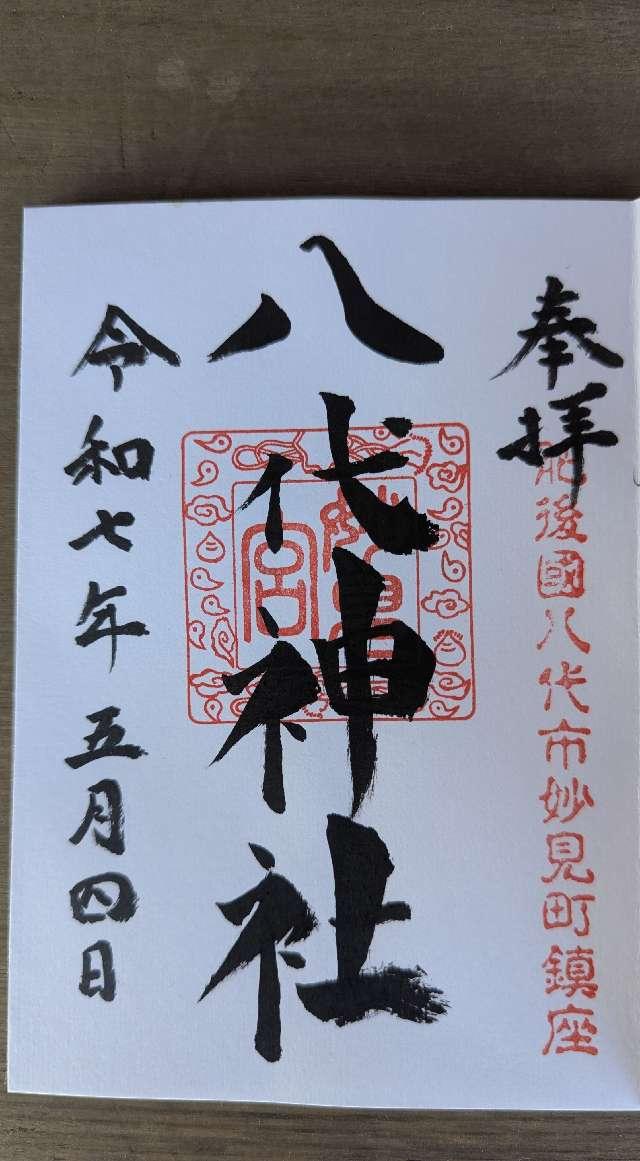 奉拝
肥後國八代市妙見町鎮座
八代神社
妙見宮
令和七年五月四日